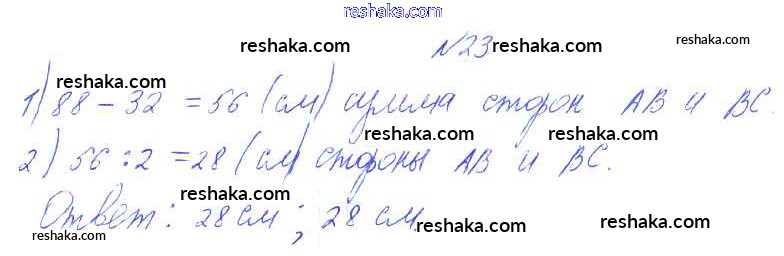 reshaka.com
№23 reshaka.com reshaka.com
reshaka.com
1) 88 - 32 = 56 (см) сумма сторон АВ и ВС.
reshaka.com reshaka.com
2) 56 : 2 = 28 (см) стороны АВ и ВС.
reshaka.com reshaka.com
Ответ: 28 см; 28 см
reshaka.com reshaka.com reshaka.com